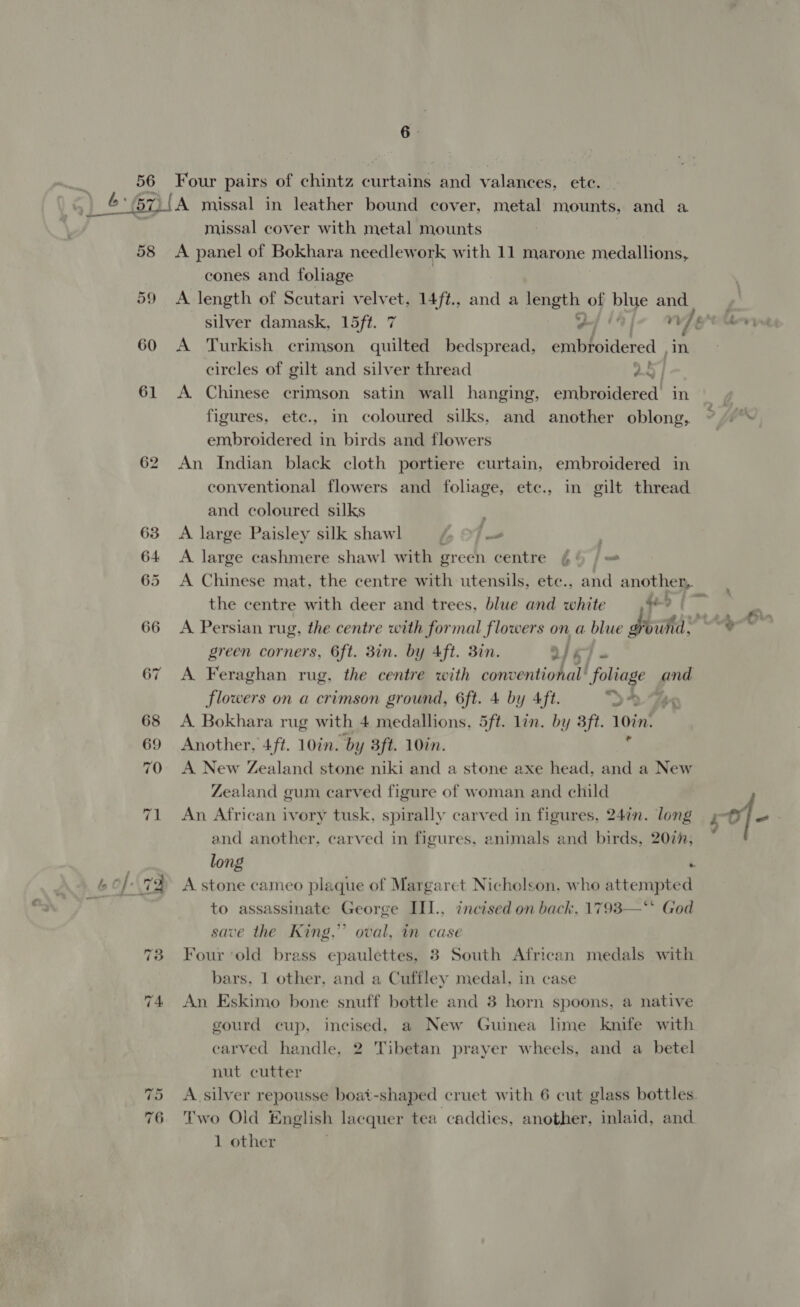 6
56 Four pairs of chintz curtains and valances, etc.
57 A missal in leather bound cover, metal mounts, and a
missal cover with metal mounts
58 A panel of Bokhara needlework with 11 marone medallions,
cones and foliage
59 A length of Scutari velvet, 14ft., and a length of blue and
silver damask, 15ft. 7
60 A Turkish crimson quilted bedspread, embroidered in
circles of gilt and silver thread 25/-
61 A Chinese crimson satin wall hanging, embroidered in
figures, etc., in coloured silks, and another oblong,
embroidered in birds and flowers
62 An Indian black cloth portiere curtain, embroidered in
conventional flowers and foliage, etc., in gilt thread
and coloured silks
63 A large Paisley silk shawl
64 A large cashmere shawl with green centre
65 A Chinese mat, the centre with utensils, etc., and another,
the centre with deer and trees, blue and white
66 A Persian rug, the centre with formal flowers on a blue ground,
green corners, 6ft. 3in. by 4ft. 3in.
67 A Feraghan rug, the centre with conventional foliage and
flowers on a crimson ground, 6ft. 4 by 4ft.
68 A Bokhara rug with 4 medallions, 5ft. 1in. by 3ft. 10in.
69 Another, 4ft. 10in. by 3ft. 10in.
70 A New Zealand stone niki and a stone axe head, and a New
Zealand gum carved figure of woman and child
71 An African ivory tusk, spirally carved in figures, 24in. long
and another, carved in figures, animals and birds, 20in,
long
72 A stone cameo plaque of Margaret Nicholson, who attempted
to assassinate George III., incised on back, 1793—“ God
save the King,” oval, in case
73 Four old brass epaulettes, 3 South African medals with
bars, 1 other, and a Cuffley medal, in case
74 An Eskimo bone snuff bottle and 3 horn spoons, a native
gourd cup, incised, a New Guinea lime knife with
carved handle, 2 Tibetan prayer wheels, and a betel
nut cutter
75 A silver repousse boat-shaped cruet with 6 cut glass bottles
76 Two Old English lacquer tea caddies, another, inlaid, and
1 other